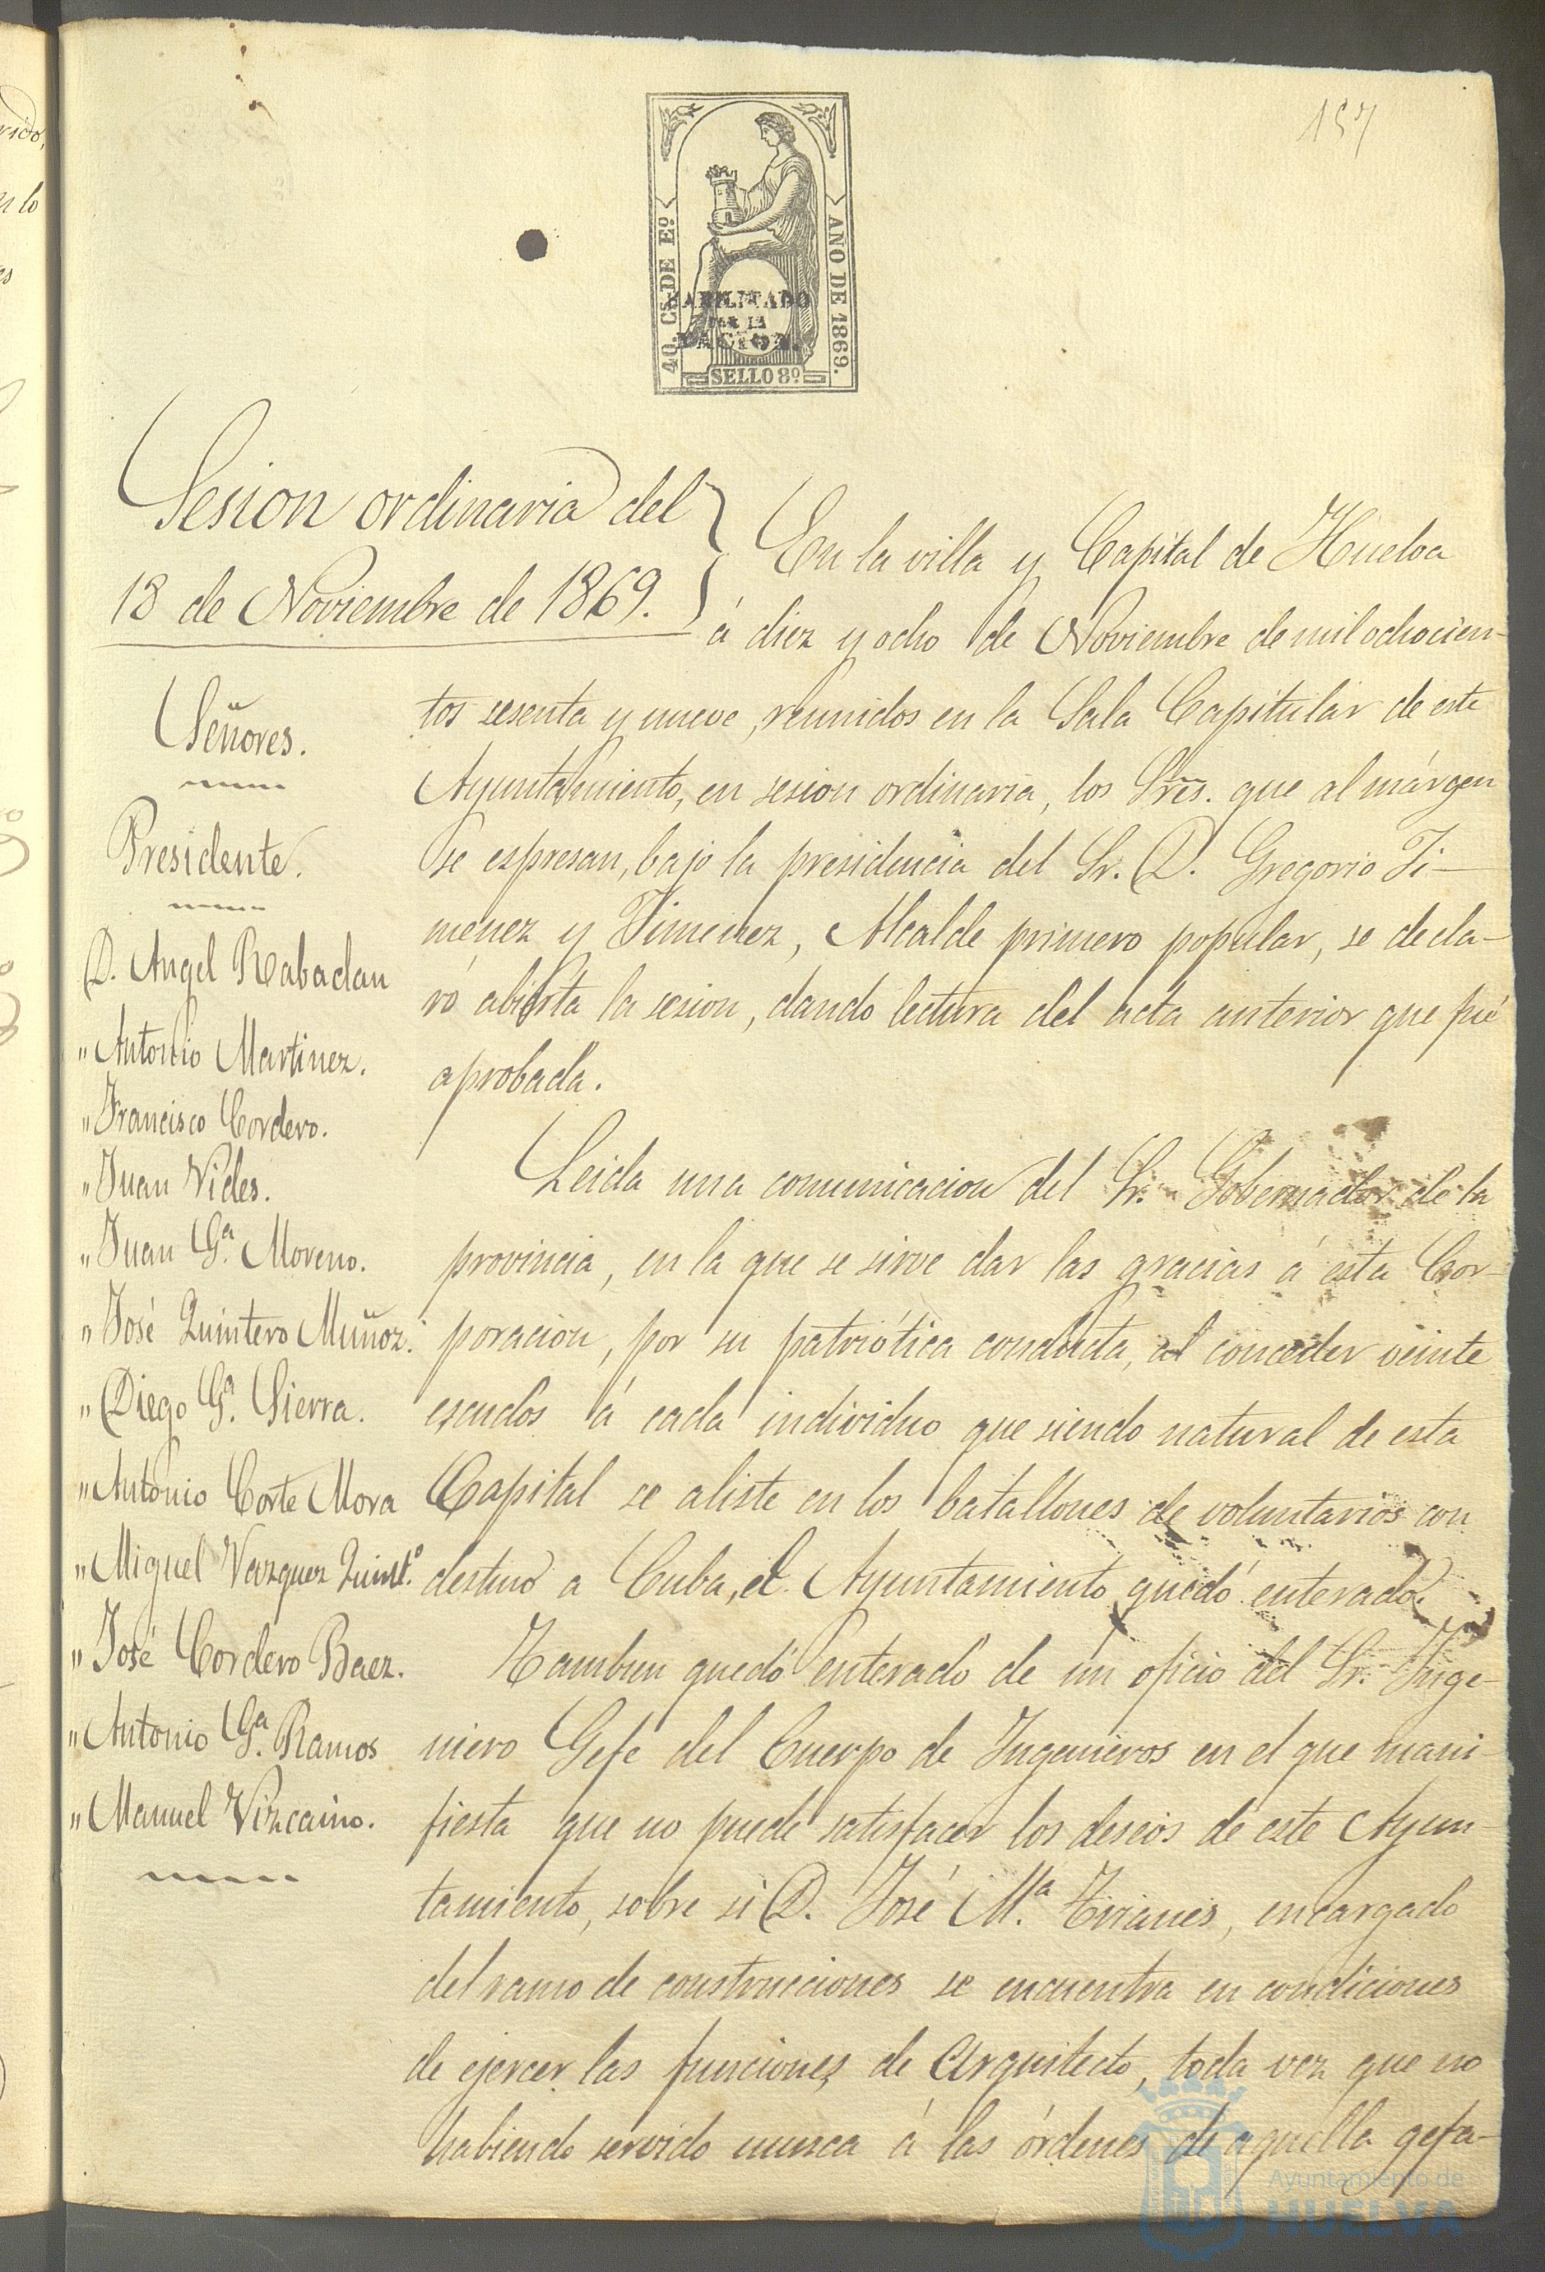 157
40. Cs. DE Eº
AÑO DE 1869.
HABILITADO
POR LA
NACION.
SELLO 8º
Sesion ordinaria del
18 de Noviembre de 1869.
Señores.
Presidente.
D. Angel Rabadan
" Antonio Martinez.
" Francisco Cordero.
" Juan Vides.
" Juan Gª. Moreno.
" José Quintero Muñoz.
" Diego Gª. Sierra.
" Antonio Corte Mora
" Miguel Vazquez Quintº.
" José Cordero Baez.
" Antonio Gª. Ramos
" Manuel Vizcaino.
En la villa y Capital de Huelva
á diez y ocho de Noviembre de mil ochocien-
tos sesenta y nueve, reunidos en la Sala Capitular de este
Ayuntamiento, en sesion ordinaria, los Sres. que al márgen
se espresan, bajo la presidencia del Sr. D. Gregorio Ji-
menez y Jimenez, Alcalde primero popular, se decla-
ró abierta la sesion, dando lectura del acta anterior que fué
aprobada.
Leida una comunicacion del Sr. Gobernador de la
provincia, en la que se sirve dar las gracias á esta Cor-
poracion, por su patriótica conducta, al conceder veinte
escudos á cada individuo que siendo natural de esta
Capital se aliste en los batallones de voluntarios con
destino a Cuba, el Ayuntamiento quedó enterado.
Tambien quedó enterado de un oficio del Sr. Inge-
niero Gefe del Cuerpo de Ingenieros en el que mani-
fiesta que no puede satisfacer los deseos de este Ayun-
tamiento, sobre si D. José Mª. encargado
del ramo de construcciones se encuentra en condiciones
de ejercer las funciones de Arquitecto, toda vez que no
habiendo servido nunca á las órdenes de aquella gefa-
Ayuntamiento de
HUELVA